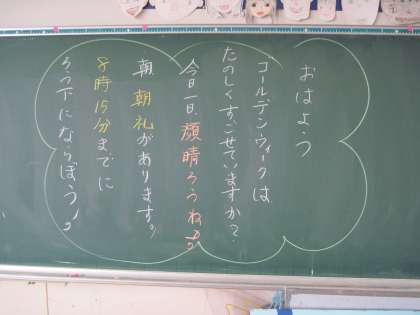 おはよう
ゴールデンウィークは
たのしくすごせていますか?
今日一日顔晴ろうね♪
朝 朝礼があります。
8時15分までに
ろう下にならぼう♪